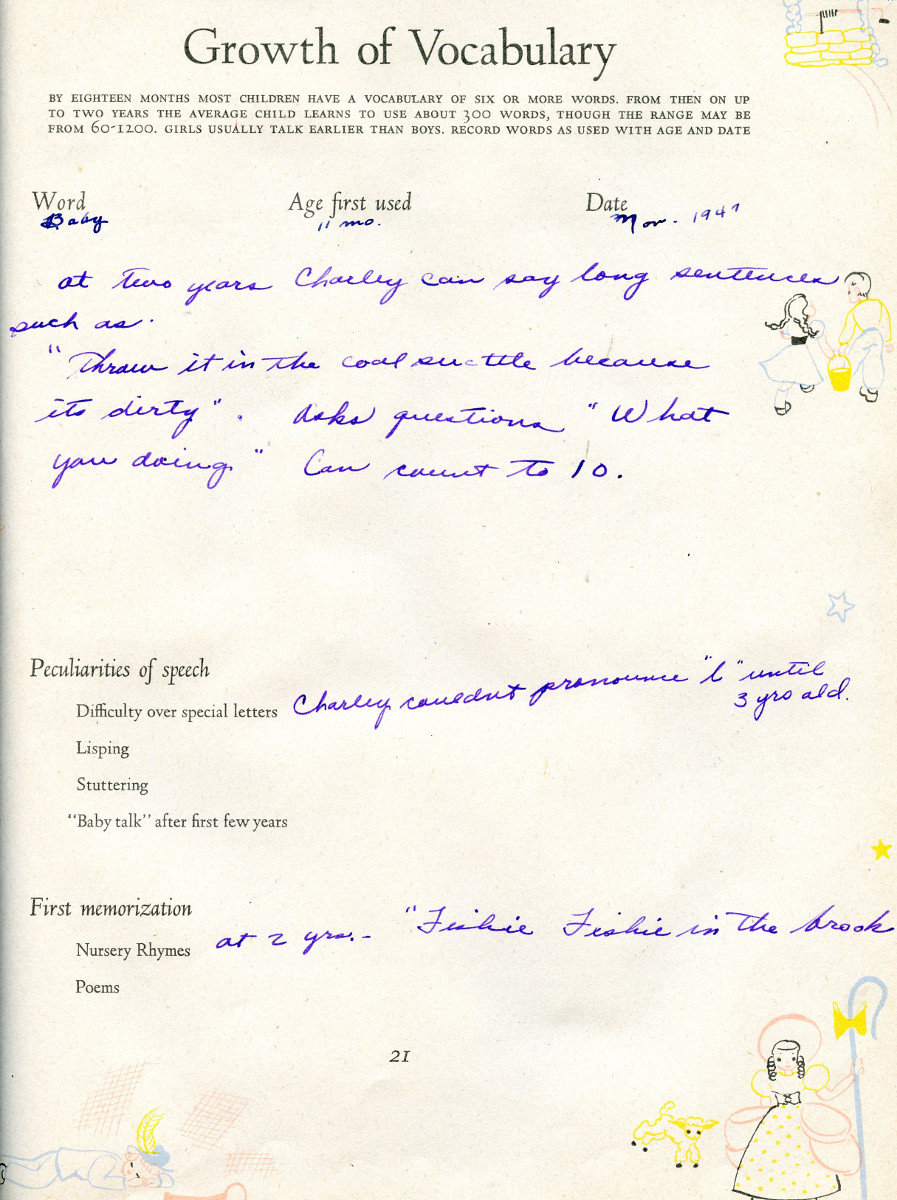 Growth of Vocabulary
BY EIGHTEEN MONTHS MOST CHILDREN HAVE A VOCABULARY OF SIX OR MORE WORDS. FROM THEN ON UP
TO TWO YEARS THE AVERAGE CHILD LEARNS TO USE ABOUT 300 WORDS, THOUGH THE RANGE MAY BE
FROM 60-1200. GIRLS USUALLY TALK EARLIER THAN BOYS. RECORD WORDS AS USED WITH AGE AND DATE
Word Age first used Date
Baby 11 mo. Nov. 1941
at two years Charley can say long sentences
such as.
"Throw it in the coal scuttle because
its dirty". Asks questions "What
you doing" Can count to 10.
Peculiarities of speech
Difficulty over special letters Charley couldnt pronounce "l" until
3 yrs old.
Lisping
Stuttering
"Baby talk" after first few years
First memorization
Nursery Rhymes at 2 yrs. - "Fishie Fishie in the brook
Poems
21